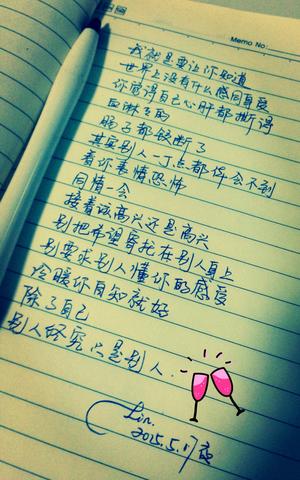 Memo No:
我就是要让你知道
世界上没有什么感同身受
你觉得自己心肝都撕得
血淋淋的
肠子都铰断了
其实别人一丁点都体会不到
看你表情恐怖
同情一会
接着该高兴还是高兴
别把希望寄托在别人身上
别要求别人懂你的感受
冷暖你自知就好
除了自己
别人终究只是别人.
Lin.
2015.5.17夜